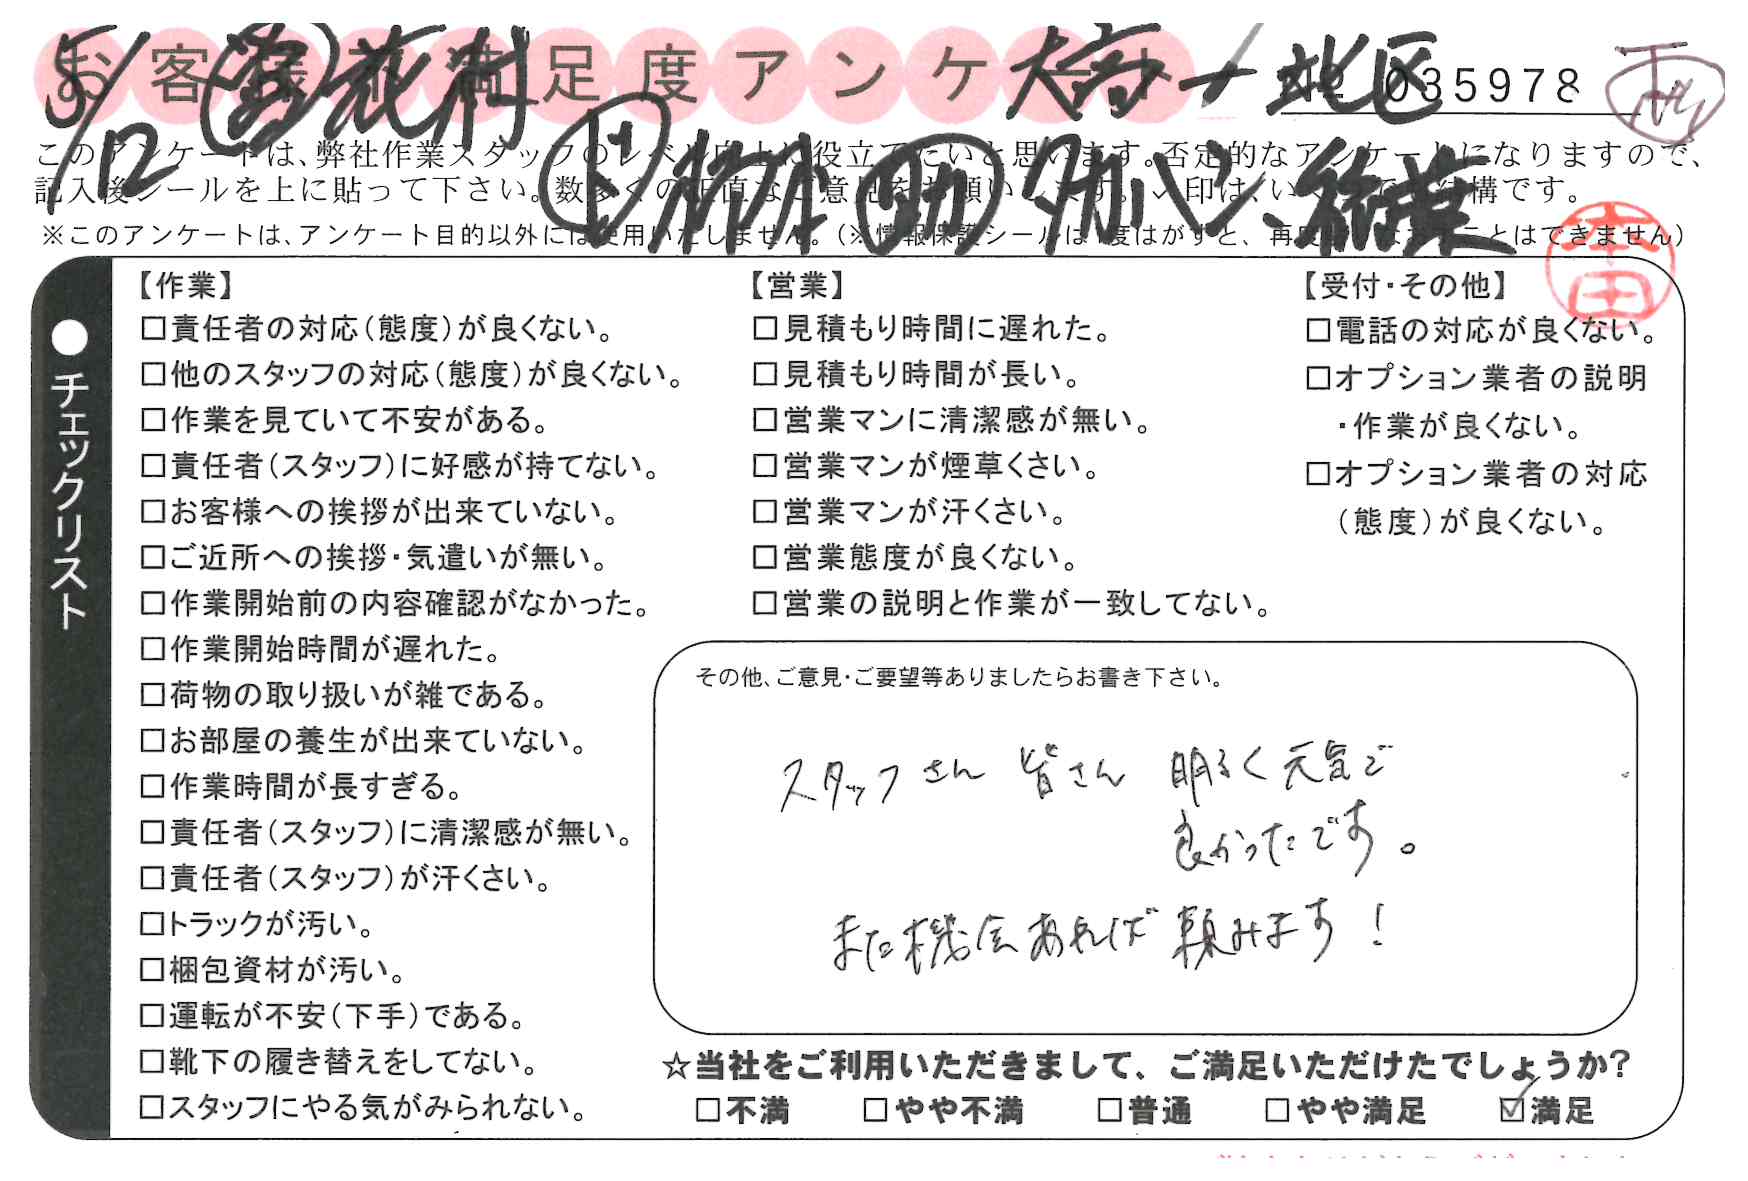 お客様満足度アンケート
5/12
花村
大高→北区
№ 035978
このアンケートは、弊社作業スタッフのレベル向上に役立てたいと思います。否定的なアンケートになりますので、
記入後シールを上に貼って下さい。数多くの正直なご意見をお願いします。✓印は、い
で結構です。
※このアンケートは、アンケート目的以外には使用いたしません。(※情報保護シールは1度はがすと、再度
ことはできません)
本田
●チェックリスト
【作業】
□責任者の対応(態度)が良くない。
□他のスタッフの対応(態度)が良くない。
□作業を見ていて不安がある。
□責任者(スタッフ)に好感が持てない。
□お客様への挨拶が出来ていない。
□ご近所への挨拶・気遣いが無い。
□作業開始前の内容確認がなかった。
□作業開始時間が遅れた。
□荷物の取り扱いが雑である。
□お部屋の養生が出来ていない。
□作業時間が長すぎる。
□責任者(スタッフ)に清潔感が無い。
□責任者(スタッフ)が汗くさい。
□トラックが汚い。
□梱包資材が汚い。
□運転が不安(下手)である。
□靴下の履き替えをしてない。
□スタッフにやる気がみられない。
【営業】
□見積もり時間に遅れた。
□見積もり時間が長い。
□営業マンに清潔感が無い。
□営業マンが煙草くさい。
□営業マンが汗くさい。
□営業態度が良くない。
□営業の説明と作業が一致してない。
【受付・その他】
□電話の対応が良くない。
□オプション業者の説明
・作業が良くない。
□オプション業者の対応
(態度)が良くない。
その他、ご意見・ご要望等ありましたらお書き下さい。
スタッフさん 皆さん 明るく元気で
良かったです。
また機会あれば頼みます!
☆当社をご利用いただきまして、ご満足いただけたでしょうか?
□不満 □やや不満 □普通 □やや満足 ☑満足